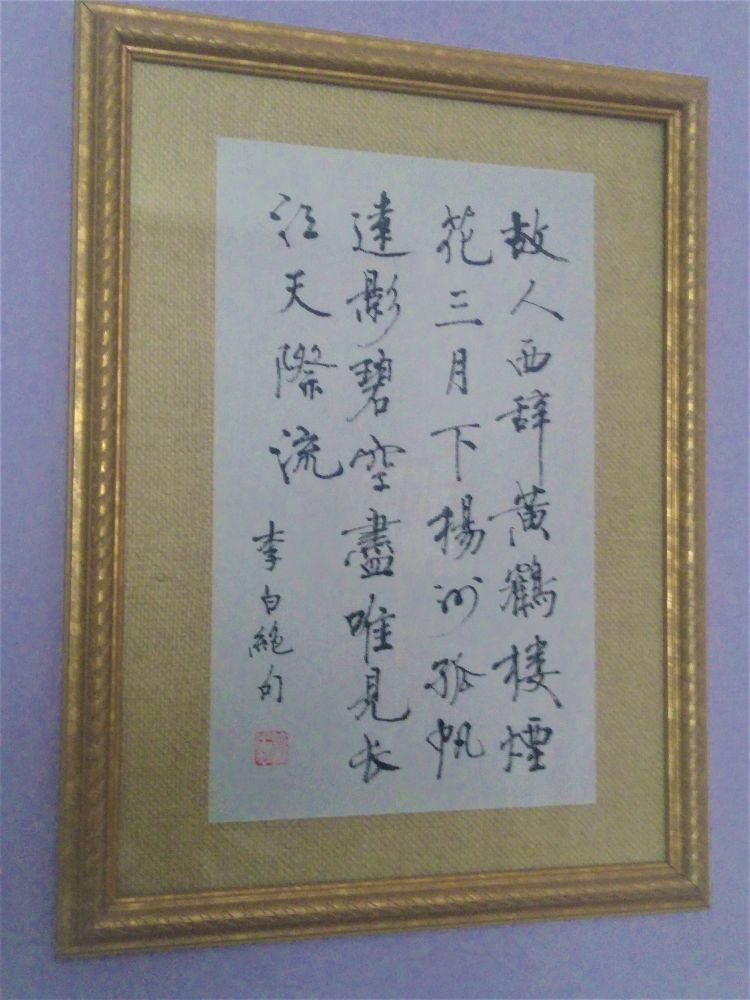 故人西辞黄鶴楼煙
花三月下楊州孤帆
遠影碧空盡唯見长
江天際流
李白絶句